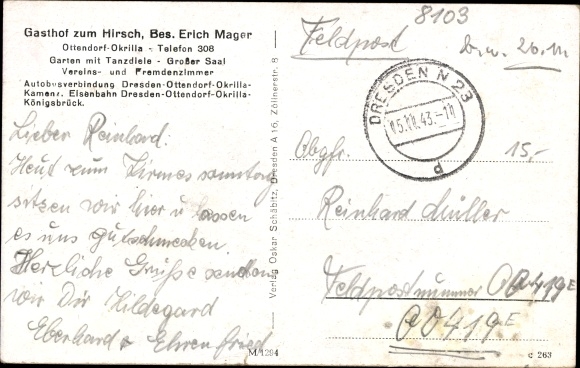 Gasthof zum Hirsch, Bes. Erich Mager
Ottendorf-Okrilla - Telefon 308
Garten mit Tanzdiele - Großer Saal
Vereins- und Fremdenzimmer
Autobusverbindung Dresden-Ottendorf-Okrilla-
Kamenz. Eisenbahn Dresden-Ottendorf-Okrilla-
Königsbrück.
Lieber Reinhard:
Heut zum Kirmessonntag
sitzen wir hier u lassen
es uns gut schmecken.
Herzliche Grüße senden
wir Dir Hildegard
Eberhard & Ehrenfried
M/1294
Verlag Oskar Schäbitz, Dresden A 16, Zöllnerstr. 8
8103
Feldpost
DRESDEN N 23
43
d
15,-
Obgfr.
Reinhard Müller
Feldpostnummer 00419E
00419E
c 263